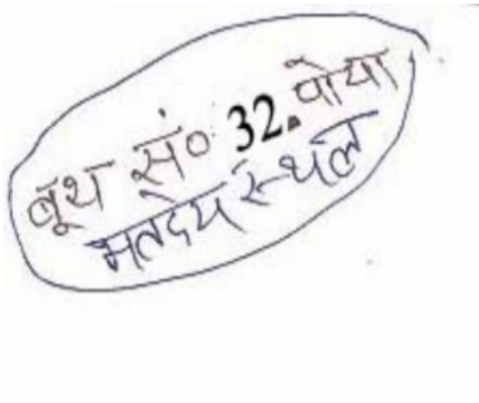 बूथ सं० 32. पोया
मतदेय स्थल